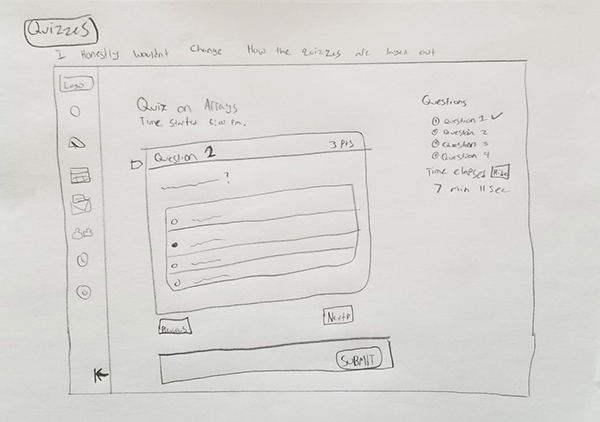 Quizzes
I Honestly wouldnt change How the quizzes are layed out
Logo
Quiz on Arrays
Time started 5:00 pm.
Question 2 3 Pts
?
Previous
Next
SUBMIT
Questions
Question 1 ✓
Question 2
Question 3
Question 4
Time elapsed Hide
7 min 11 sec